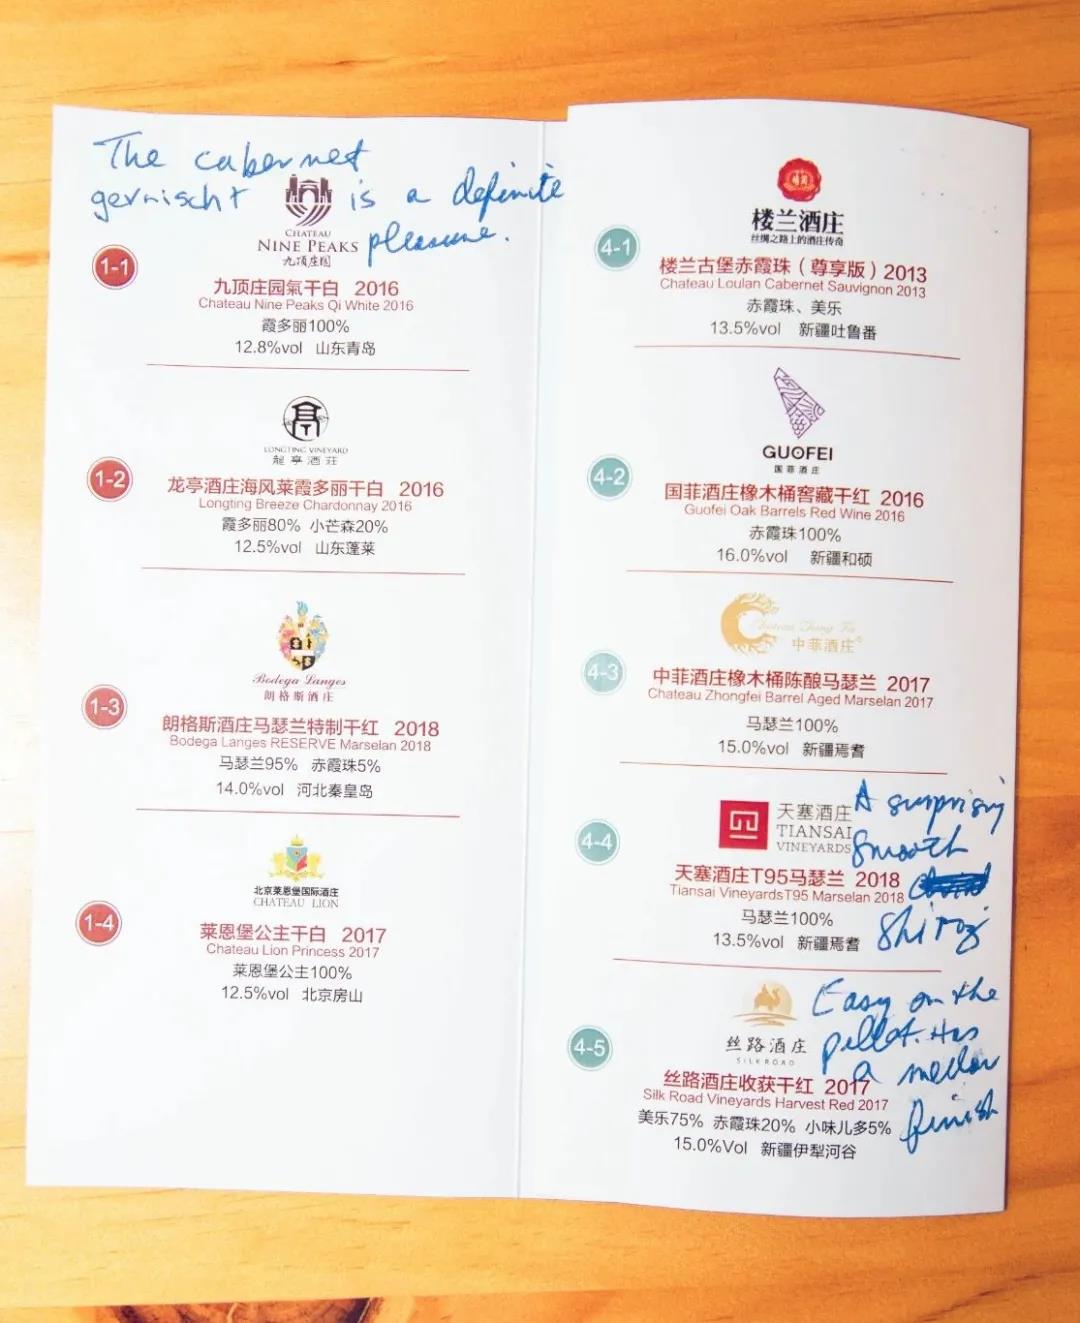 The cabernet
gernischt is a definite
pleasure.
CHATEAU
NINE PEAKS
九顶庄园
1-1
九顶庄园氣干白 2016
Chateau Nine Peaks Qi White 2016
霞多丽100%
12.8%vol 山东青岛
LONGTING VINEYARD
龍亭酒莊
1-2
龙亭酒庄海风莱霞多丽干白 2016
Longting Breeze Chardonnay 2016
霞多丽80% 小芒森20%
12.5%vol 山东蓬莱
Bodega Langes
朗格斯酒庄
1-3
朗格斯酒庄马瑟兰特制干红 2018
Bodega Langes RESERVE Marselan 2018
马瑟兰95% 赤霞珠5%
14.0%vol 河北秦皇岛
北京莱恩堡国际酒庄
CHATEAU LION
1-4
莱恩堡公主干白 2017
Chateau Lion Princess 2017
莱恩堡公主100%
12.5%vol 北京房山
楼兰酒庄
丝绸之路上的酒庄传奇
4-1
楼兰古堡赤霞珠（尊享版）2013
Chateau Loulan Cabernet Sauvignon 2013
赤霞珠、美乐
13.5%vol 新疆吐鲁番
GUOFEI
国菲酒庄
4-2
国菲酒庄橡木桶窖藏干红 2016
Guofei Oak Barrels Red Wine 2016
赤霞珠100%
16.0%vol 新疆和硕
Chateau Zhong Fei
中菲酒庄
4-3
中菲酒庄橡木桶陈酿马瑟兰 2017
Chateau Zhongfei Barrel Aged Marselan 2017
马瑟兰100%
15.0%vol 新疆焉耆
天塞酒庄
TIANSAI
VINEYARDS
4-4
天塞酒庄T95马瑟兰 2018
Tiansai VineyardsT95 Marselan 2018
马瑟兰100%
13.5%vol 新疆焉耆
A surprisiny
smooth
Shiroz
丝路酒庄
SILKROAD
4-5
丝路酒庄收获干红 2017
Silk Road Vineyards Harvest Red 2017
美乐75% 赤霞珠20% 小味儿多5%
15.0%Vol 新疆伊犁河谷
Easy on the
pellat. Has
a mellow
finish